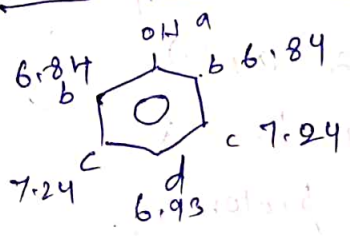 OH a
6.84 b b 6.84
c c 7.24
7.24 d
6.93